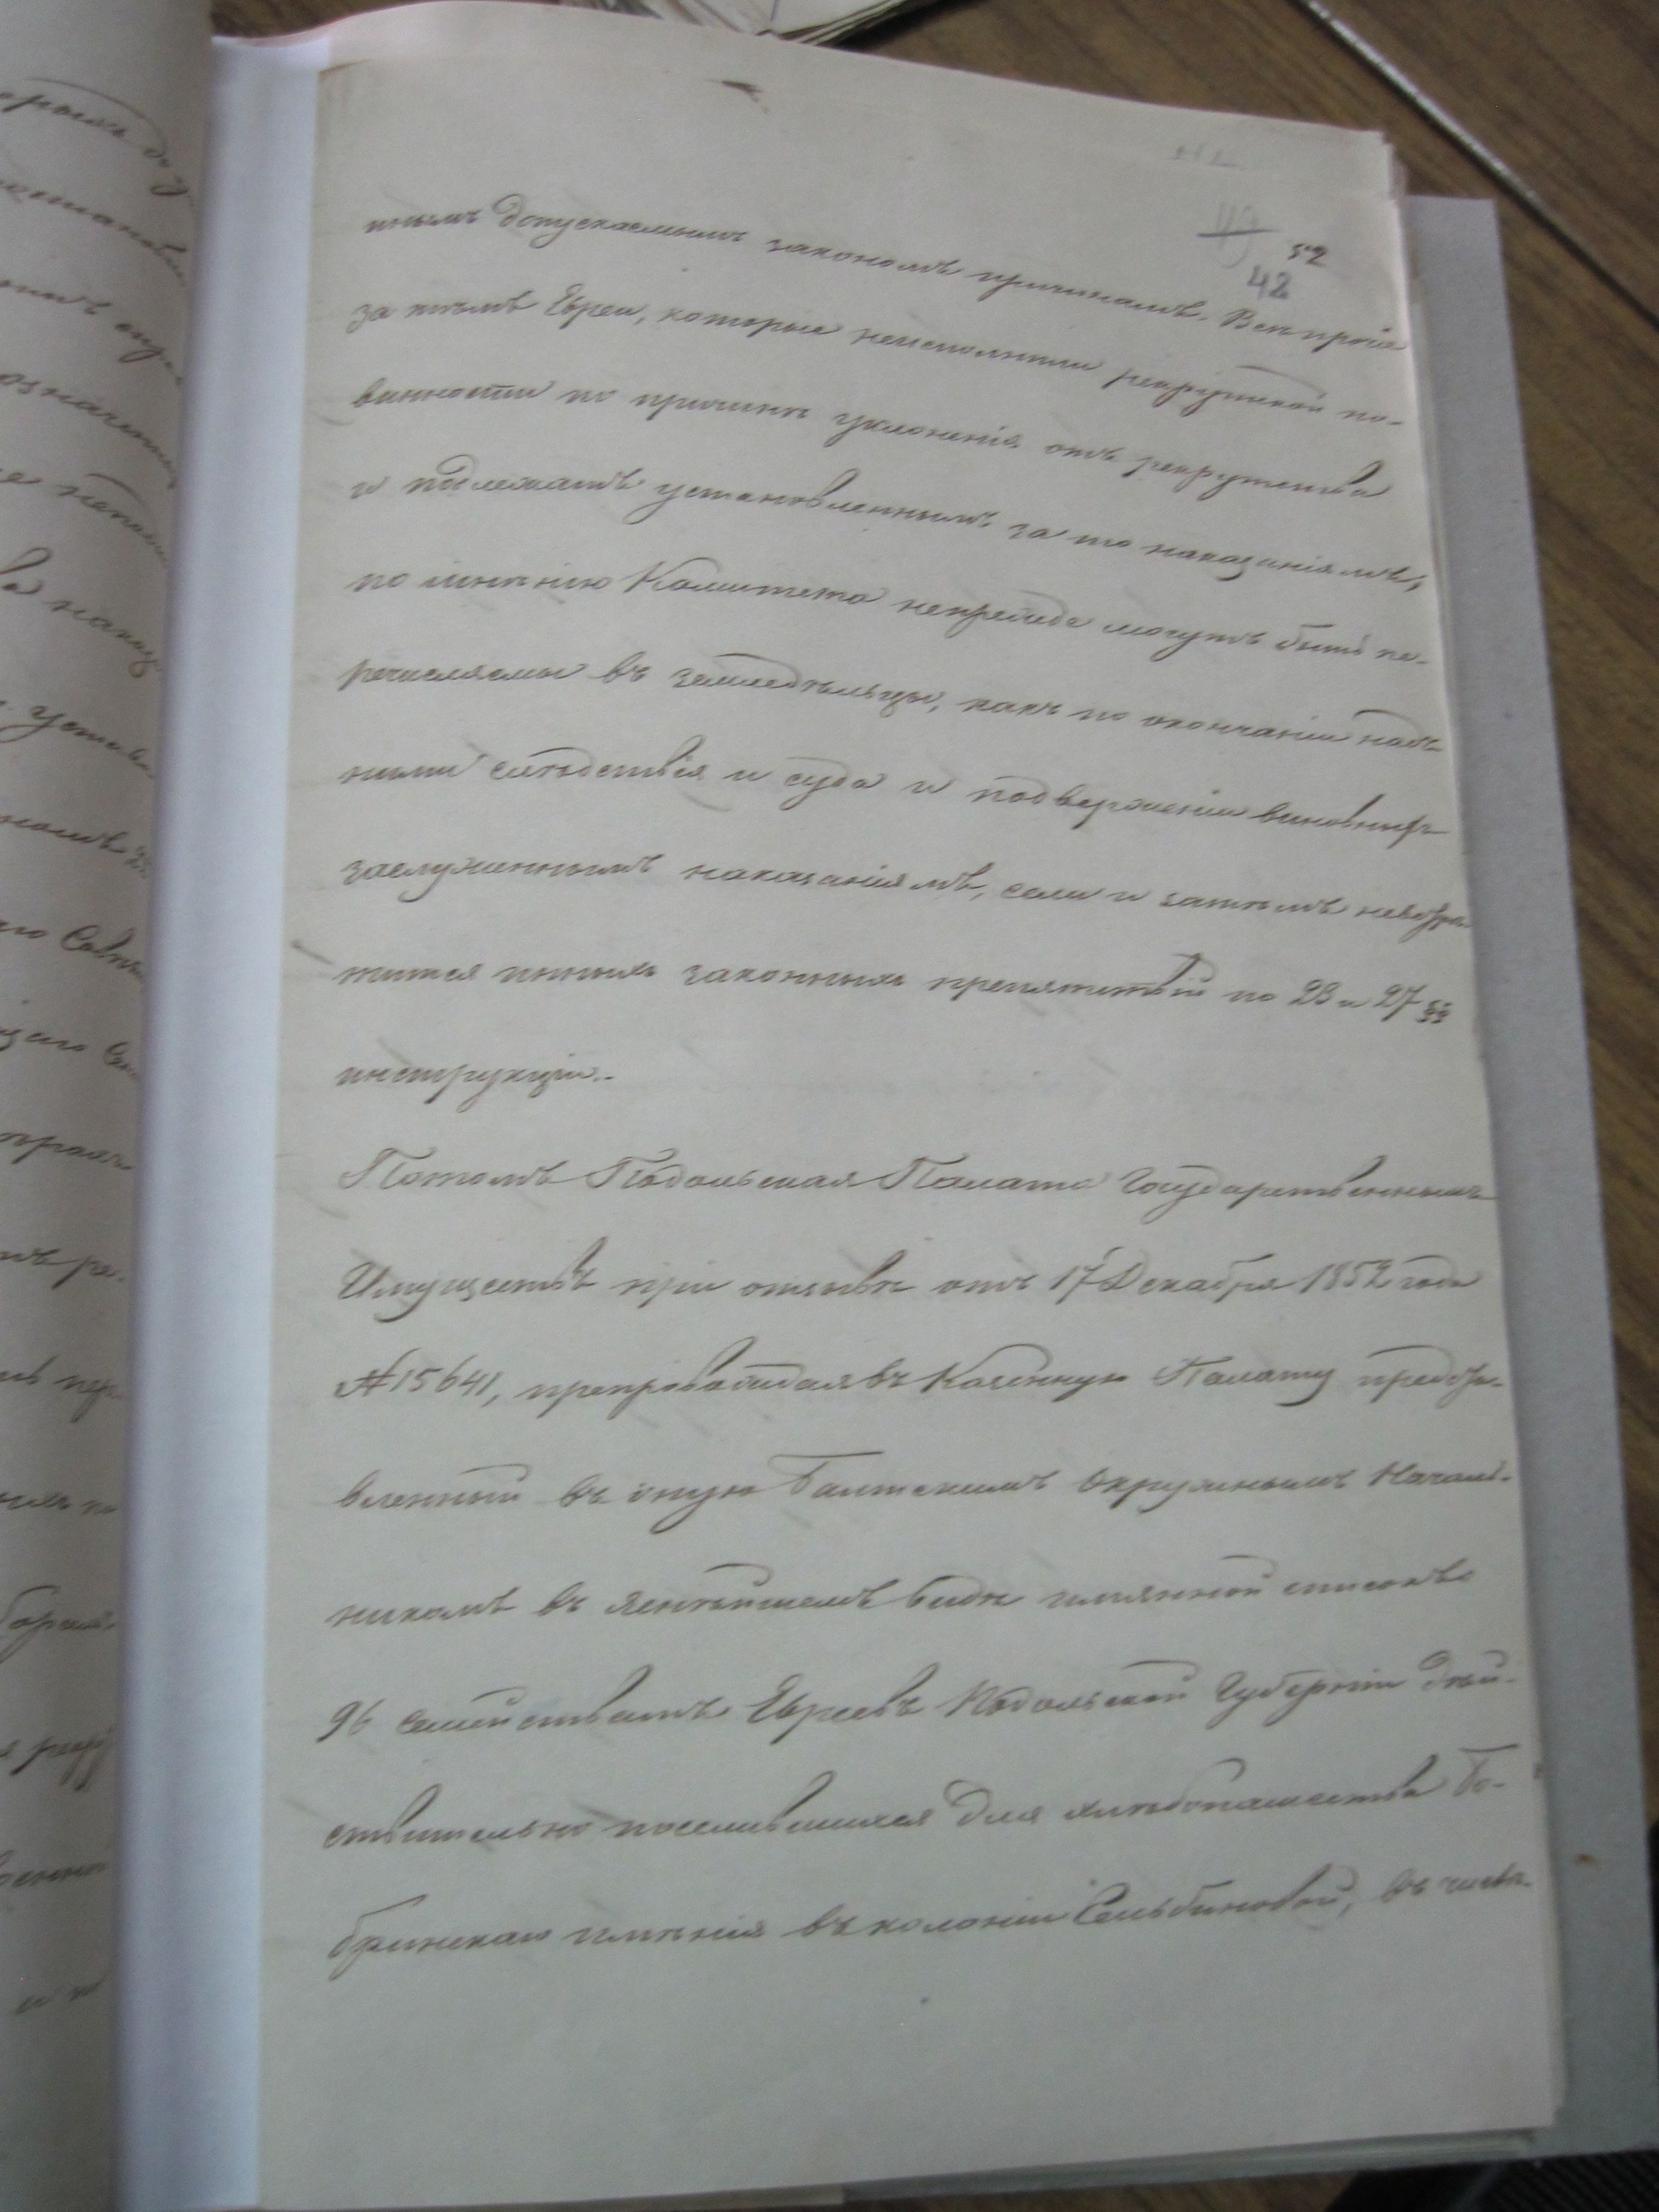 52
42
инымъ допускаемымъ закономъ причинамъ. Всѣ прочіе
за тѣмъ Евреи, которые неисполнили рекрутской по-
винности по причинѣ уклоненія отъ рекрутства
и подлежатъ установленнымъ за то наказаніямъ,
по мнѣнію Комитета непрежде могутъ быть пе-
речисляемы въ земледѣльцы, какъ по окончаніи надъ
ними слѣдствія и суда и подверженіи виновныхъ
заслуженнымъ наказаніямъ, если и затѣмъ невстрѣ-
тится иныхъ законныхъ препятствій по 23 и 27 §§
инструкціи.
Потомъ Подольская Палата Государственныхъ
Имуществъ при отзывѣ отъ 17 Декабря 1852 года
№ 15641, препровождая въ Казенную Палату предста-
вленный въ оную Балтскимъ Окружнымъ Началь-
никомъ въ имянной списокъ
96 семействамъ Евреевъ Подольской Губерніи дѣй-
ствительно поселившихся для хлѣбопашества Бо-
бринскаго имѣнія въ колоніи въ числѣ